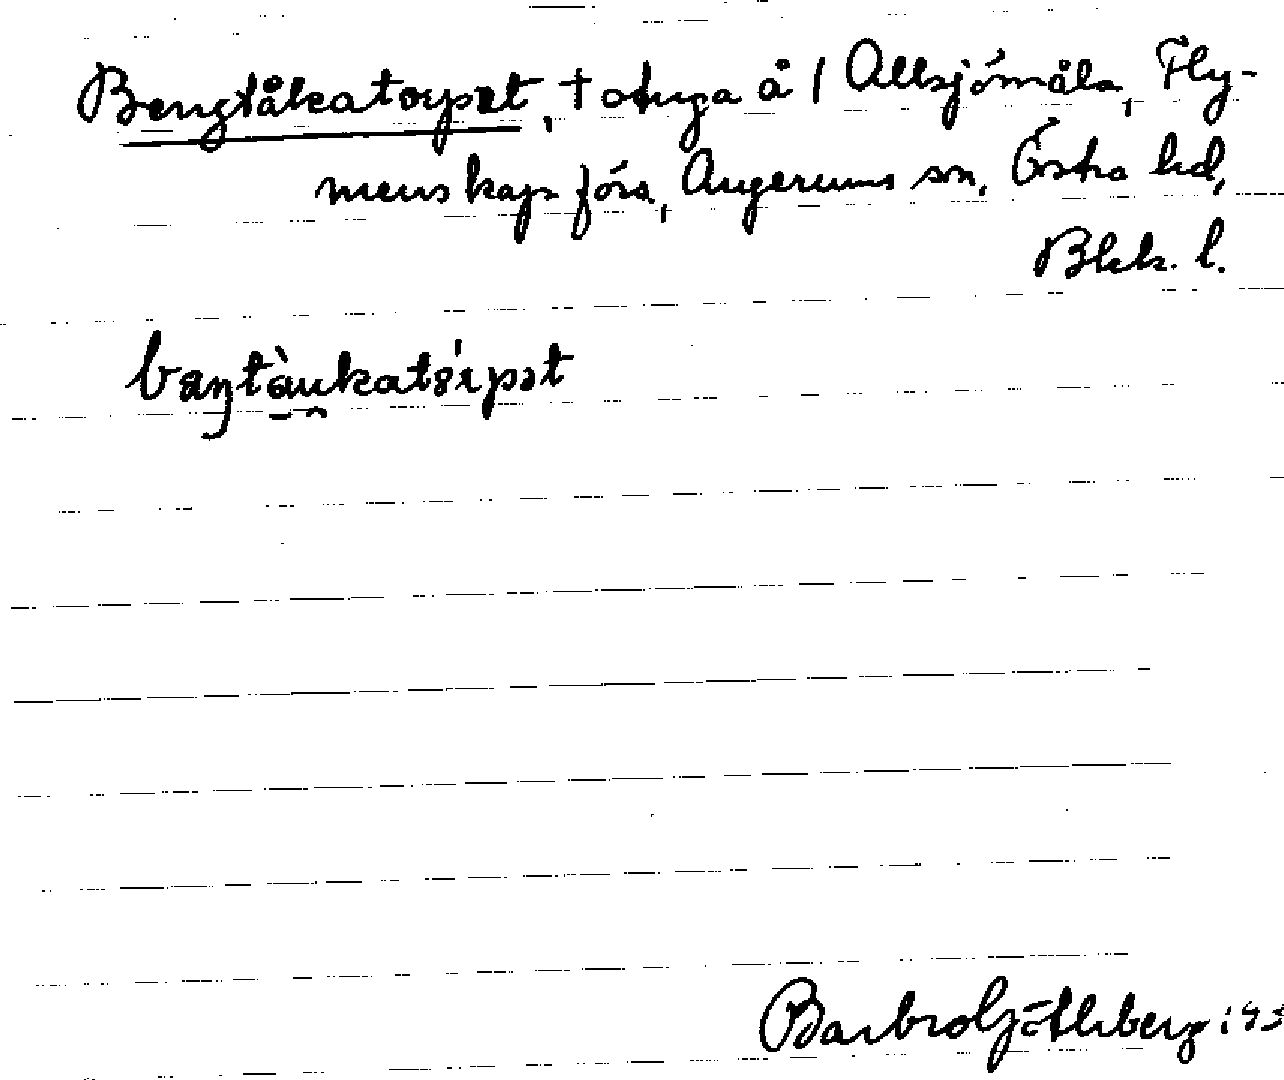 Bengtåkatorpet, † stuga å 1 Allsjömåla, Fly-
mens kap. förs., Augerums sn, Östra hd,
Blek. l.
bæŋtàukatórpət
Barbro Götleberg i 93